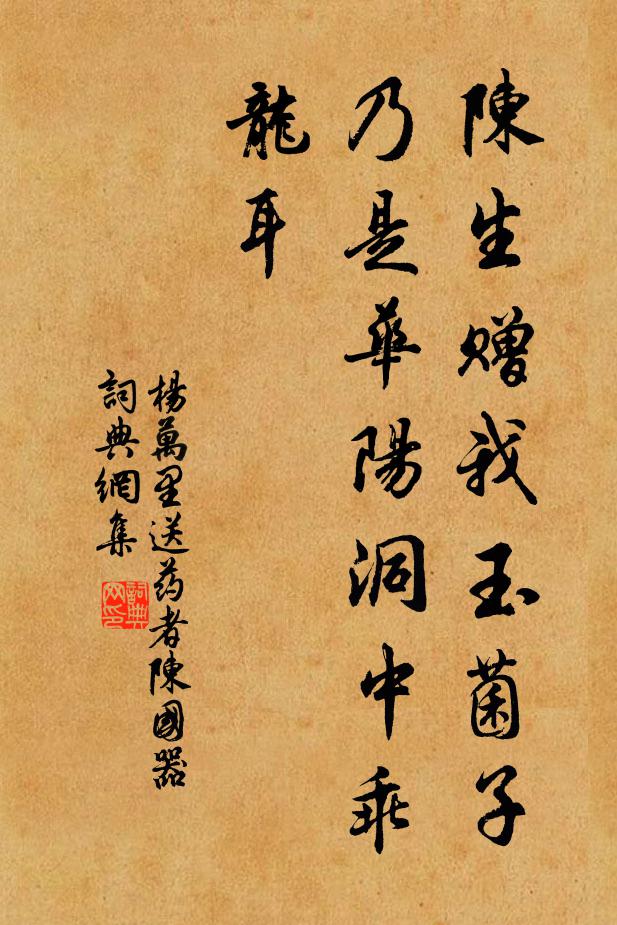 陳生贈我玉菌子
乃是華陽洞中乖
龍耳
楊萬里送药者陳國器
詞典網集
詞典
网印